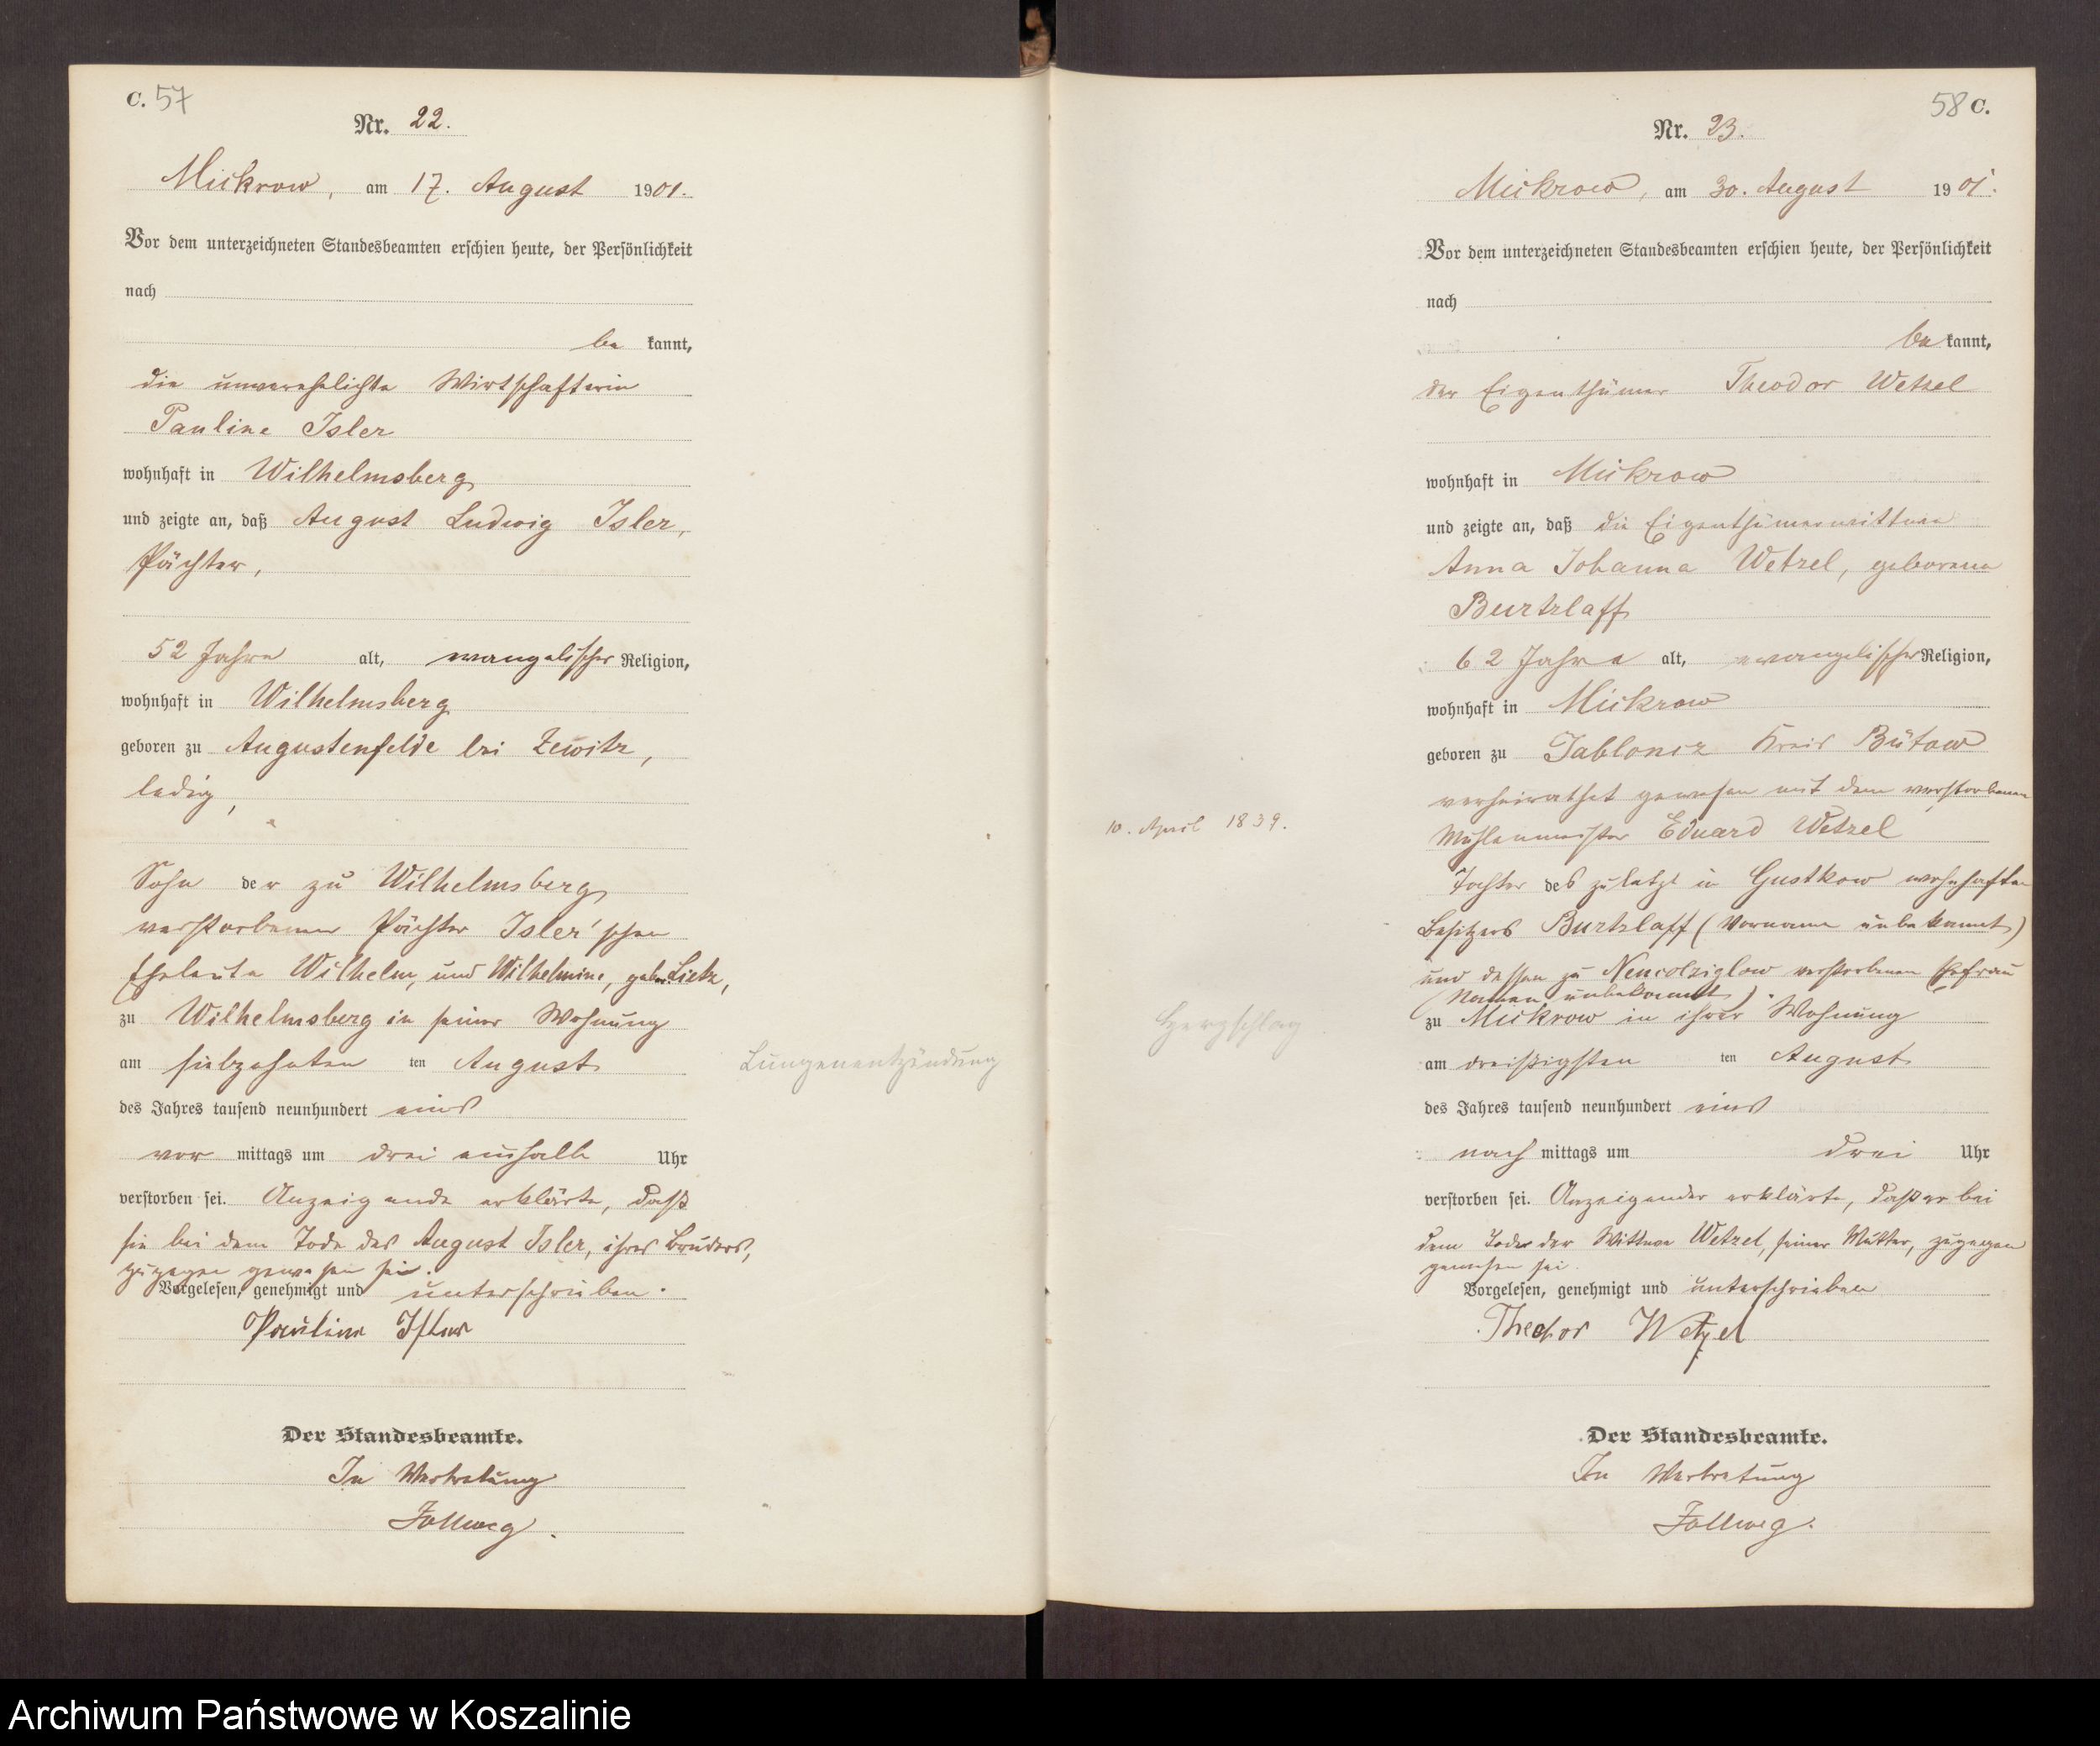 C. 57
Nr. 22.
Mickrow, am 17. August 1901.
Vor dem unterzeichneten Standesbeamten erschien heute, der Persönlichkeit
nach
be kannt,
die unverehelichte Wirtschafterin
Pauline Isler
wohnhaft in Wilhelmsberg
und zeigte an, daß August Ludwig Isler,
Pächter,
52 Jahre alt, evangelischer Religion,
wohnhaft in Wilhelmsberg
geboren zu Augustenfelde bei Zewitz,
ledig,
Sohn der zu Wilhelmsberg
verstorbenen Pächter Isler'schen
Eheleute Wilhelm, und Wilhelmine, geb. Lietz,
zu Wilhelmsberg in seiner Wohnung
am siebzehnten ten August
des Jahres tausend neunhundert eins
vor mittags um drei einhalb Uhr
verstorben sei. Anzeigende erklärte, daß
sie bei dem Tode des August Isler, ihres Bruders,
zugegen gewesen sei.
Vorgelesen, genehmigt und unterschrieben.
Pauline Isler
Der Standesbeamte.
In Vertretung
Zollweg.
Lungenentzündung
58 C.
Nr. 23.
Mickrow, am 30. August 1901.
Vor dem unterzeichneten Standesbeamten erschien heute, der Persönlichkeit
nach
be kannt,
der Eigenthümer Theodor Wetzel
wohnhaft in Mickrow
und zeigte an, daß die Eigenthümerwittwe
Anna Johanna Wetzel, geborene
Burtzlaff
62 Jahre alt, evangelischer Religion,
wohnhaft in Mickrow
geboren zu Jabloncz Kreis Bütow
verheirathet gewesen mit dem verstorbenen
10. April 1839.
Mühlenmeister Eduard Wetzel
Tochter des zuletzt in Gustkow wohnhaften
Besitzers Burtzlaff (Vorname unbekannt)
und dessen zu Neucolziglow verstorbenen Ehefrau
(Namen unbekannt)
zu Mickrow in ihrer Wohnung
Herzschlag
am dreißigsten ten August
des Jahres tausend neunhundert eins
nach mittags um drei Uhr
verstorben sei. Anzeigender erklärte, daß er bei
dem Tode der Wittwe Wetzel, seiner Mutter, zugegen
gewesen sei
Vorgelesen, genehmigt und unterschrieben
Theodor Wetzel
Der Standesbeamte.
In Vertretung
Zollweg.
Archiwum Państwowe w Koszalinie